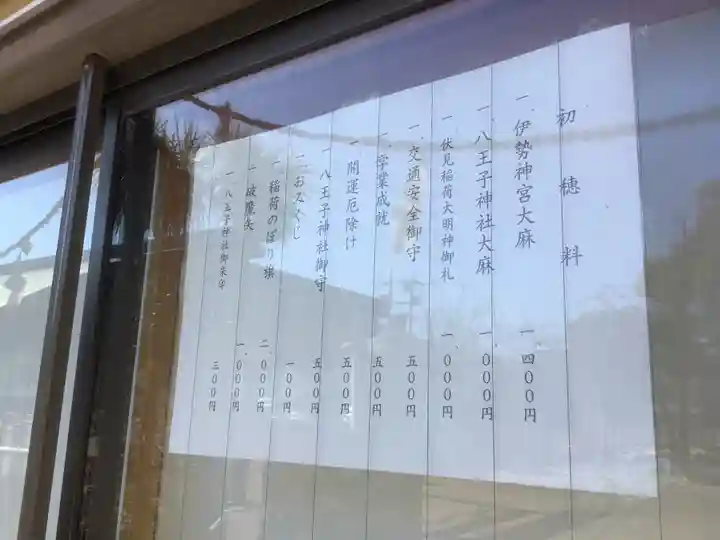 初穂料
一、伊勢神宮大麻 一四〇〇円
一、八王子神社大麻 一、〇〇〇円
一、伏見稲荷大明神御札 一、〇〇〇円
一、交通安全御守 五〇〇円
一、営業成就 五〇〇円
一、開運厄除け 五〇〇円
一、八王子神社御守 五〇〇円
一、おみくじ 一〇〇円
一、稲荷のぼり旗 二、〇〇〇円
一、破魔矢 一、〇〇〇円
一、八王子神社御朱印 三〇〇円